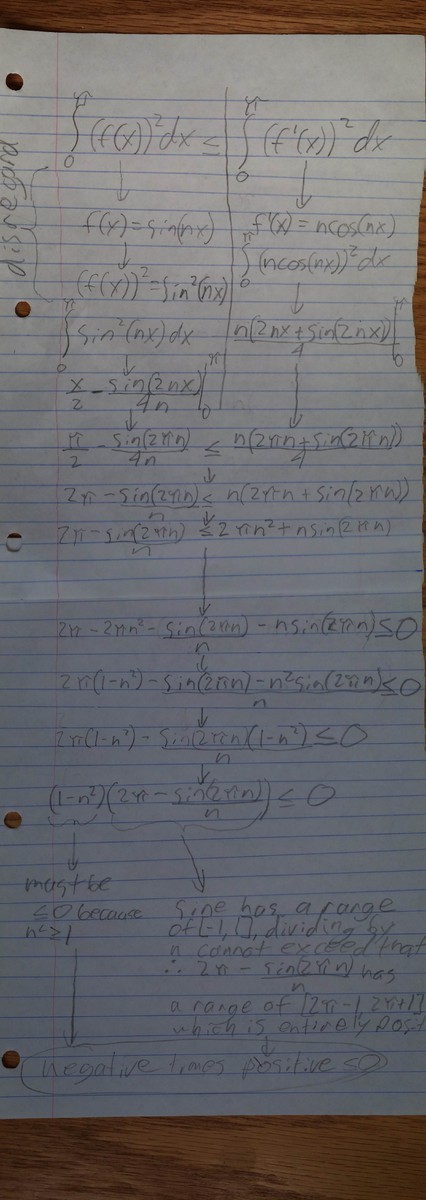 disregard
∫₀^π (f(x))² dx ≤ ∫₀^π (f'(x))² dx
f(x) = sin(nx) f'(x) = ncos(nx)
(f(x))² = sin²(nx) ∫₀^π (ncos(nx))² dx
∫₀^π sin²(nx) dx n(2nx + sin(2nx))/4 |₀^π
x/2 - sin(2nx)/4n |₀^π
π/2 - sin(2πn)/4n ≤ n(2πn + sin(2πn))/4
2π - sin(2πn)/n ≤ n(2πn + sin(2πn))
2π - sin(2πn)/n ≤ 2πn² + nsin(2πn)
2π - 2πn² - sin(2πn)/n - nsin(2πn) ≤ 0
2π(1-n²) - sin(2πn) - n²sin(2πn)/n ≤ 0
2π(1-n²) - sin(2πn)(1-n²)/n ≤ 0
(1-n²)(2π - sin(2πn)/n) ≤ 0
must be
≤0 because
n² ≥ 1
Sine has a range
of [-1, 1], dividing by
n cannot exceed that
∴ 2π - sin(2πn)/n has
a range of [2π-1, 2π+1]
which is entirely posit
negative times positive ≤0